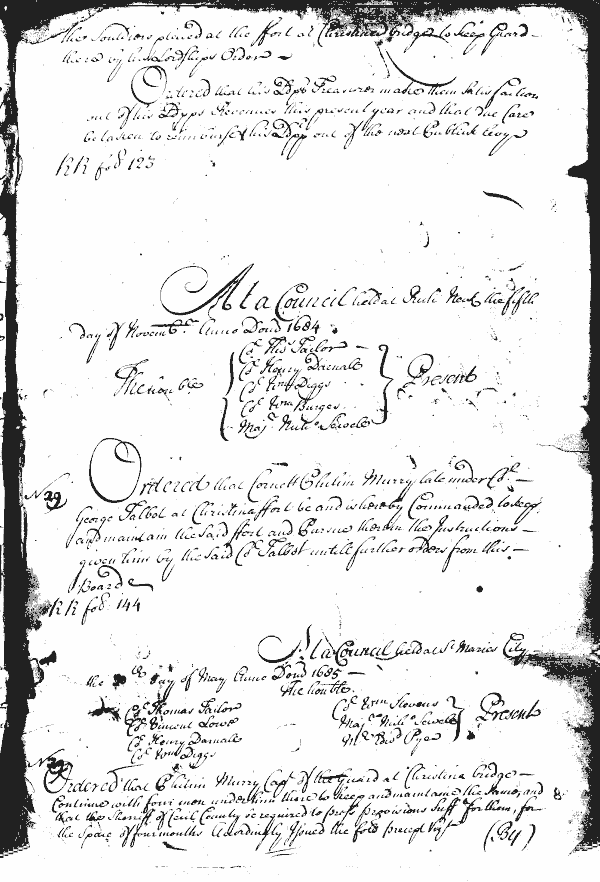 the Souldiers placed at the ffort at Christina bridge to keep Guard
there by his Lordships Order
Ordered that his Ldps Treasurer make them satisfaction
out of his Ldpps Revenues this present year and that due Care
be taken to reimburse his Ldpp out of the next Publick levye
RR fol: 123
At a Council held at Neck the fifth
day of Novembr. Anno Domi 1684
The honble
Co. Tho: Tailor
Co. Henry Darnall
Co. Wm Diggs
Co. Wm Burges
Majr. Nicho: Sewele
Present
No 29
Ordered that Cornett Phelim Murry late under Co.
George Talbot at Christina ffort be and is hereby Commanded to keep
and maintain the Said ffort and Pursue therein the Instructions
given him by the Said Co. Talbot untill further orders from this
Board
RR fol: 144
At a Council held at St. Maries City
the day of May Anno Domi 1685
The honble.
Co. Thomas Tailor
Co. Vincent Lowe
Co. Henry Darnall
Co. Wm Diggs
Co. Wm Stevens
Majr. Nicho: Sewele
Present
Ordered that Phelim Murry Capt. of the Guard at Christina bridge
Continue with four men under him there to keep and maintaine the Same, and
that the Sherriff of Cecil County be required to press Provisions Suff. for them, for
the Space of four months Accordingly Issued the